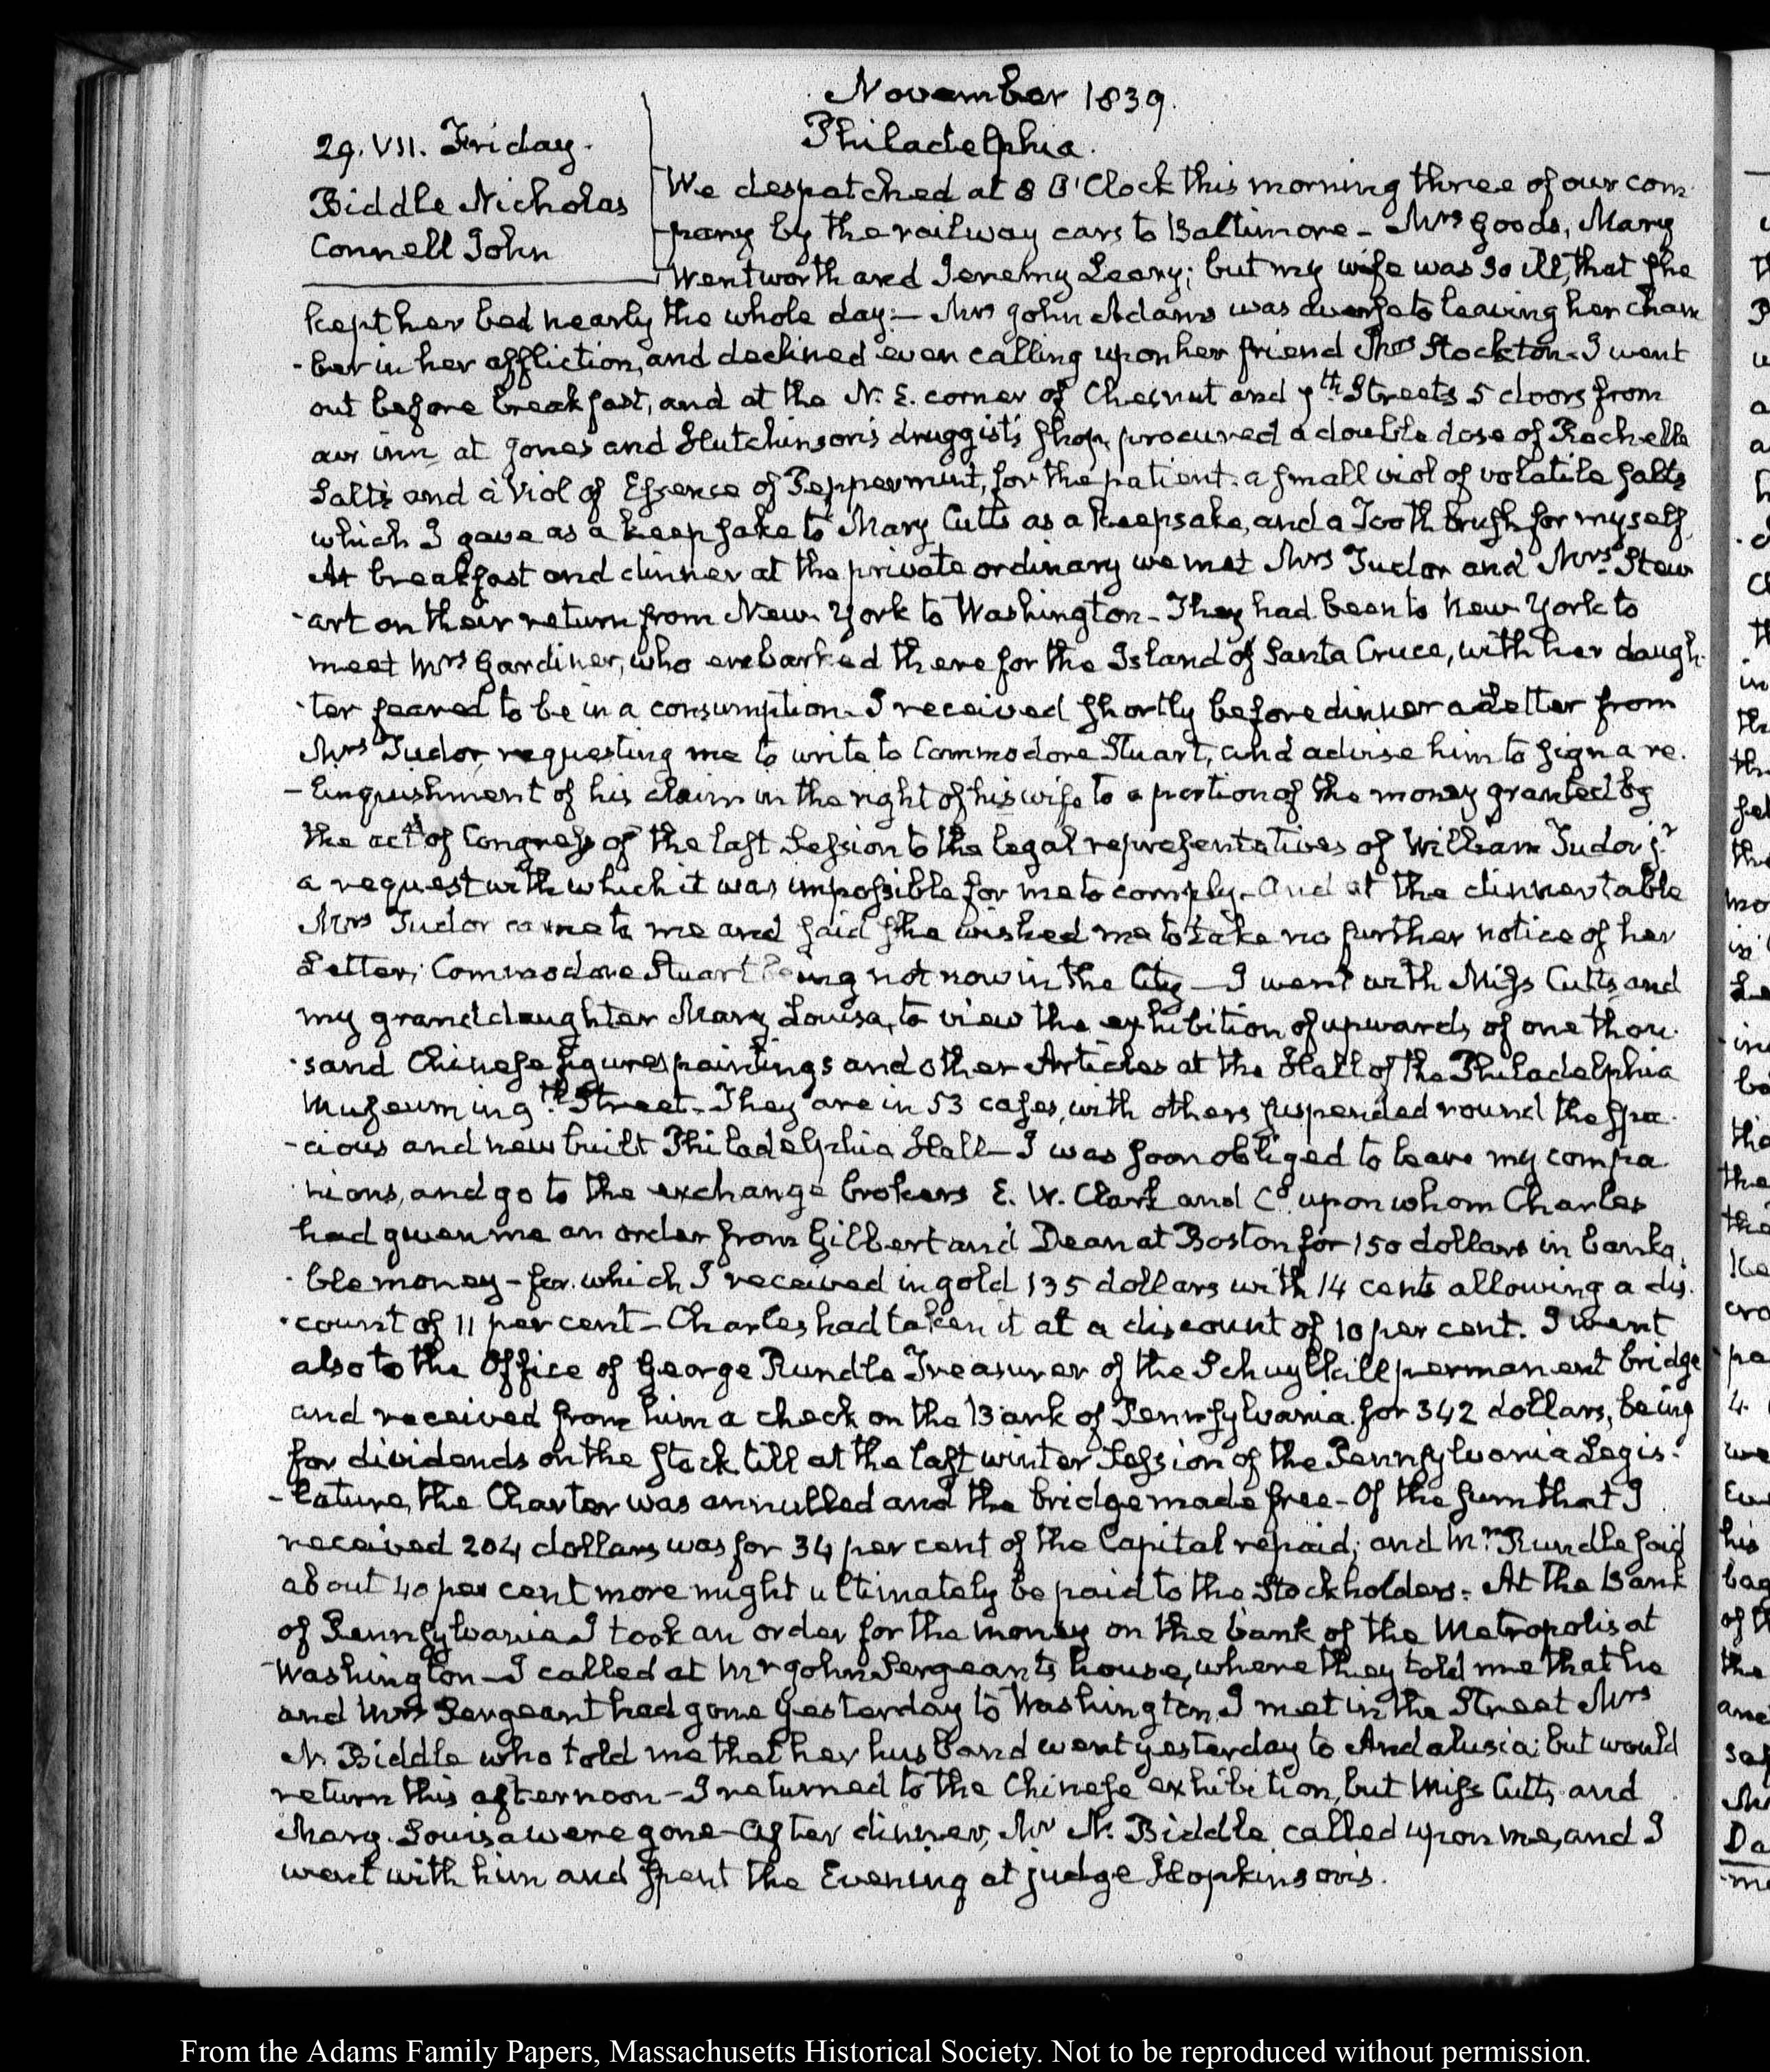 November 1839.
Philadelphia.
29. VII. Friday.
Biddle Nicholas
Connell John
We despatched at 8 O'Clock this morning three of our com
-pany by the railway cars to Baltimore - Mrs Goods, Mary
Wentworth and Jeremy Leary; but my wife was so ill, that she
kept her bed nearly the whole day:- Mrs John Adams was averse to leaving her cham
-ber in her affliction, and declined even calling upon her friend Mrs Stockton. I went
out before breakfast, and at the N. E. corner of Chesnut and 7th Streets 5 doors from
our inn at Jones and Hutchinson's druggists shop, procured a double dose of Rochelle
Salts and a Viol of Essence of Peppermint, for the patient. a small viol of volatile salts
which I gave as a keepsake to Mary Cutts as a keepsake, and a Tooth brush for myself.
At breakfast and dinner at the private ordinary we met Mrs Tudor and Mrs. Stew
-art on their return from New-York to Washington - They had been to New-York to
meet Mrs Gardiner, who embarked there for the Island of Santa Cruce, with her daugh
-ter feared to be in a consumption - I received shortly before dinner a Letter from
Mrs Tudor, requesting me to write to Commodore Stuart, and advise him to sign a re.
-linquishment of his claim in the right of his wife to a portion of the money granted by
the act of Congress of the last Session to the legal representatives of William Tudor jr
a request with which it was impossible for me to comply - And at the dinner table
Mrs Tudor came to me and said she wished me to take no further notice of her
Letter; Commodore Stuart being not now in the City - I went with Miss Cutts and
my granddaughter Mary Louisa, to view the exhibition of upwards of one thou
-sand Chinese figures paintings and other Articles at the Hall of the Philadelphia
Museum in 9th Street - They are in 53 cases, with others suspended round the spa
-cious and new built Philadelphia Hall - I was soon obliged to leave my compa
-nions, and go to the exchange brokers E. W. Clark and Co. upon whom Charles
had given me an order from Gilbert and Dean at Boston for 150 dollars in banka
-ble money - for which I received in gold 135 dollars with 14 cents allowing a dis.
-count of 11 per cent - Charles had taken it at a discount of 10 per cent. I went
also to the Office of George Rundle Treasurer of the Schuylkill permanent bridge
and received from him a check on the Bank of Pennsylvania for 342 dollars, being
for dividends on the stock till at the last winter Session of the Pennsylvania Legis-
-lature, the Charter was annulled and the bridge made free - Of the sum that I
received 204 dollars was for 34 per cent of the Capital repaid; and Mr. Rundle said
about 40 per cent more might ultimately be paid to the Stockholders. At the Bank
of Pennsylvania I took an order for the money on the bank of the Metropolis at
Washington - I called at Mr John Sergeant's house, where they told me that he
and Mrs Sergeant had gone yesterday to Washington. I met in the Street Mrs
N. Biddle who told me that her husband went yesterday to Andalusia; but would
return this afternoon - I returned to the Chinese exhibition, but Miss Cutts and
Mary Louisa were gone - After dinner, Mr N. Biddle called upon me, and I
went with him and spent the Evening at judge Hopkinson's.
From the Adams Family Papers, Massachusetts Historical Society. Not to be reproduced without permission.